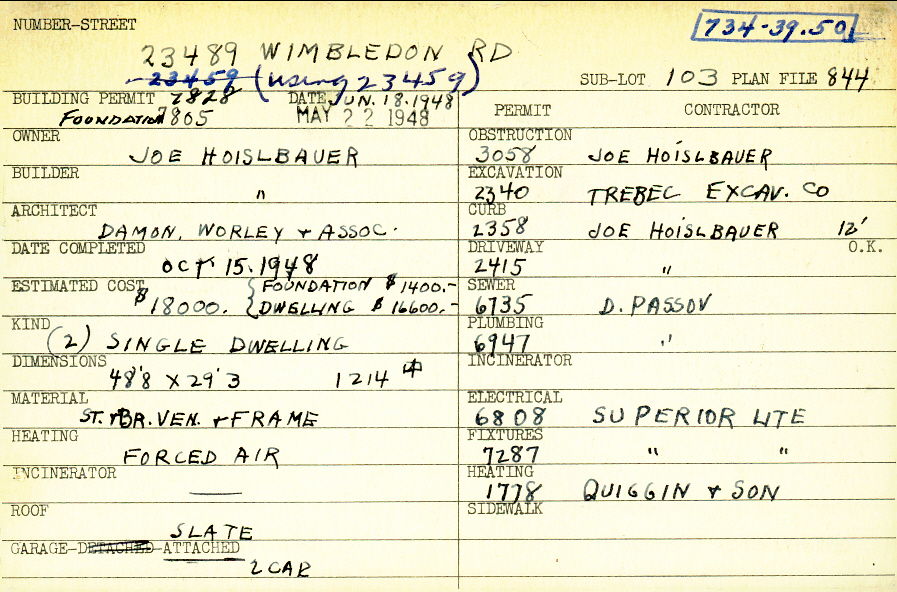 NUMBER-STREET
734-39.50
23489 WIMBLEDON RD
23459 (using 23459)
SUB-LOT 103 PLAN FILE 844
BUILDING PERMIT 7828 DATE JUN. 18. 1948
FOUNDATION 7805 MAY 22 1948
PERMIT CONTRACTOR
OWNER
JOE HOISLBAUER
BUILDER
"
ARCHITECT
DAMON, WORLEY + ASSOC.
DATE COMPLETED
OCT 15. 1948
ESTIMATED COST
$18000. { FOUNDATION $1400.-
DWELLING $16600.-
KIND
(2) SINGLE DWELLING
DIMENSIONS
48'8 X 29'3 1214
MATERIAL
ST. + BR. VEN. + FRAME
HEATING
FORCED AIR
INCINERATOR
—
ROOF
SLATE
GARAGE-DETACHED-ATTACHED
2 CAR
OBSTRUCTION
3058 JOE HOISLBAUER
EXCAVATION
2340 TREBEC EXCAV. CO
CURB
2358 JOE HOISLBAUER 12'
DRIVEWAY O.K.
2415 "
SEWER
6735 D. PASSOV
PLUMBING
6947 "
INCINERATOR
ELECTRICAL
6808 SUPERIOR LITE
FIXTURES
7287 " "
HEATING
1778 QUIGGIN + SON
SIDEWALK